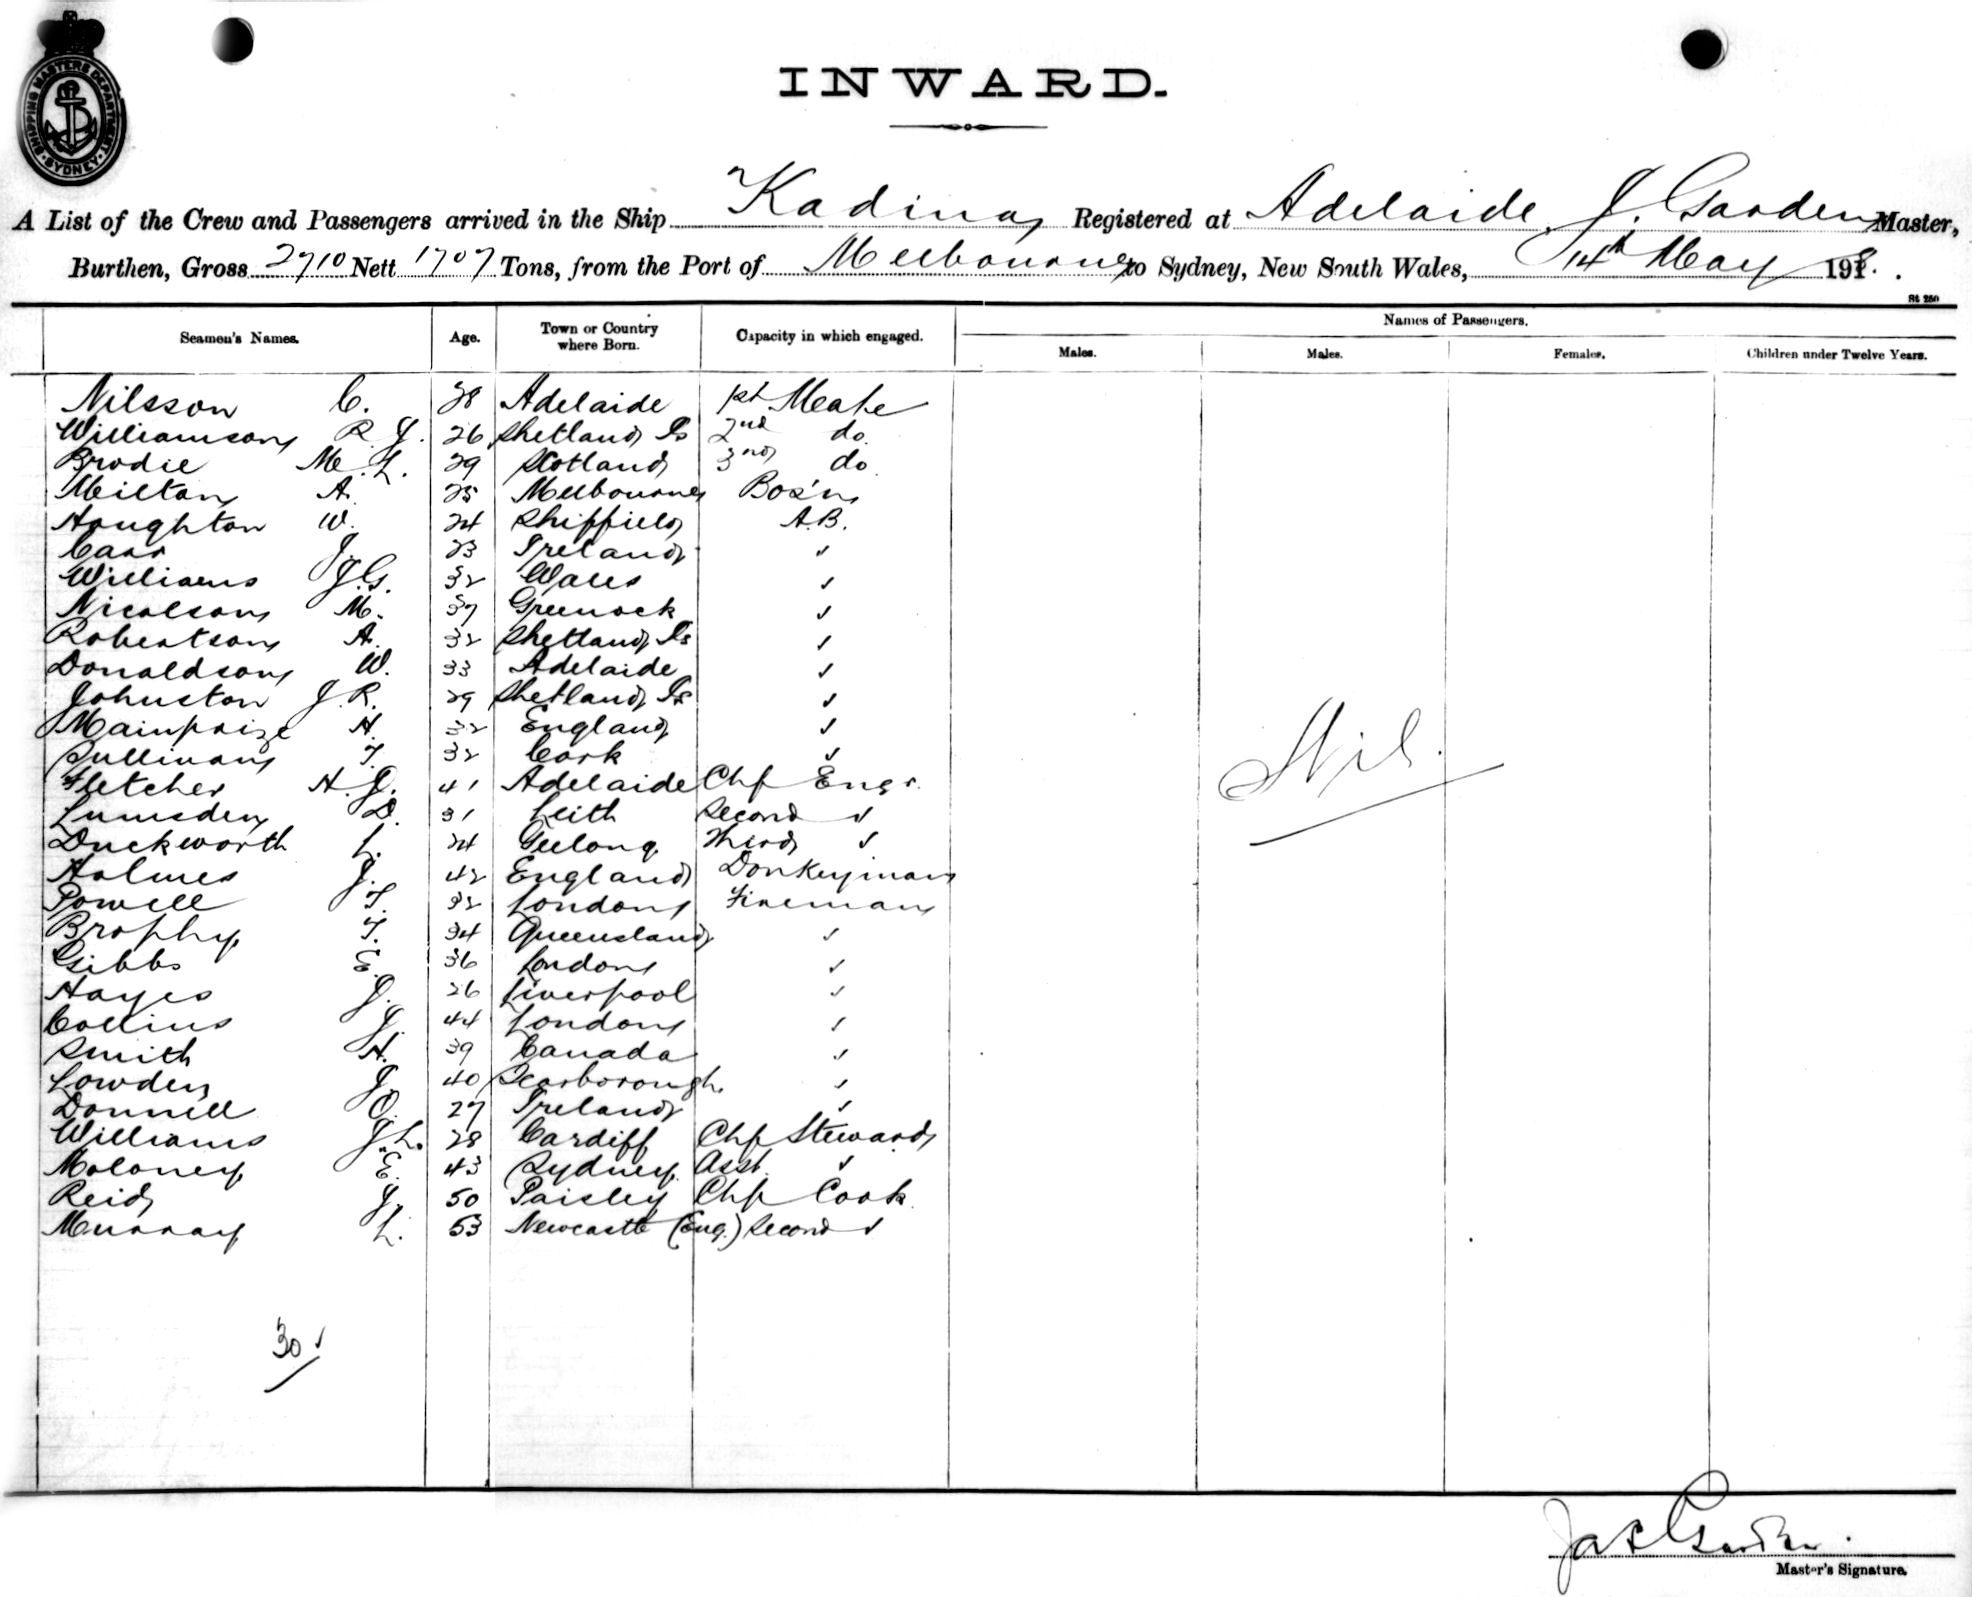 SHIPPING MASTERS DEPARTMENT
SYDNEY
INWARD.
A List of the Crew and Passengers arrived in the Ship Kadina Registered at Adelaide J. Garden Master,
Burthen, Gross 2710 Nett 1707 Tons, from the Port of Melbourne to Sydney, New South Wales, 14th May 191
St 250
Seamen's Names. Age. Town or Country where Born. Capacity in which engaged. Names of Passengers.
Males. Males. Females. Children under Twelve Years.
Nilsson C. 28 Adelaide 1st Mate
Williamson R. J. 26 Shetland Is 2nd do.
Brodie M. L. 29 Scotland 3rd do
Milton A. 25 Melbourne Bos'n
Houghton W. 24 Shiffield A.B.
Carr J. 23 Ireland ✓
Williams J.G. 32 Wales ✓
Nicolson M. 37 Greenock ✓
Robertson A. 32 Shetland Is ✓
Donaldson W. 33 Adelaide ✓
Johnston J. R. 29 Shetland Is ✓
Mainprize H. 32 England ✓
Sullivan T. 32 Cork ✓
Fletcher H. J. 41 Adelaide Chf Engr.
Lumsden D. 31 Leith Second ✓
Duckworth L. 24 Geelong Third ✓
Holmes J. 42 England Donkeyman
Powell T. 32 London Fireman
Brophy T. 34 Queensland ✓
Gibbs E. 36 London ✓
Hayes J. 26 Liverpool ✓
Collins J. 44 London ✓
Smith H. 39 Canada ✓
Lowden J. 40 Scarborough ✓
Donnell O. 27 Ireland ✓
Williams J.L. 28 Cardiff Chf Steward
Moloney E. 43 Sydney Asst. ✓
Reid J. 50 Paisley Chf Cook
Murray L. 53 Newcastle (Eng.) Second ✓
Nil.
30 ✓
Jas Garden
Master's Signature.